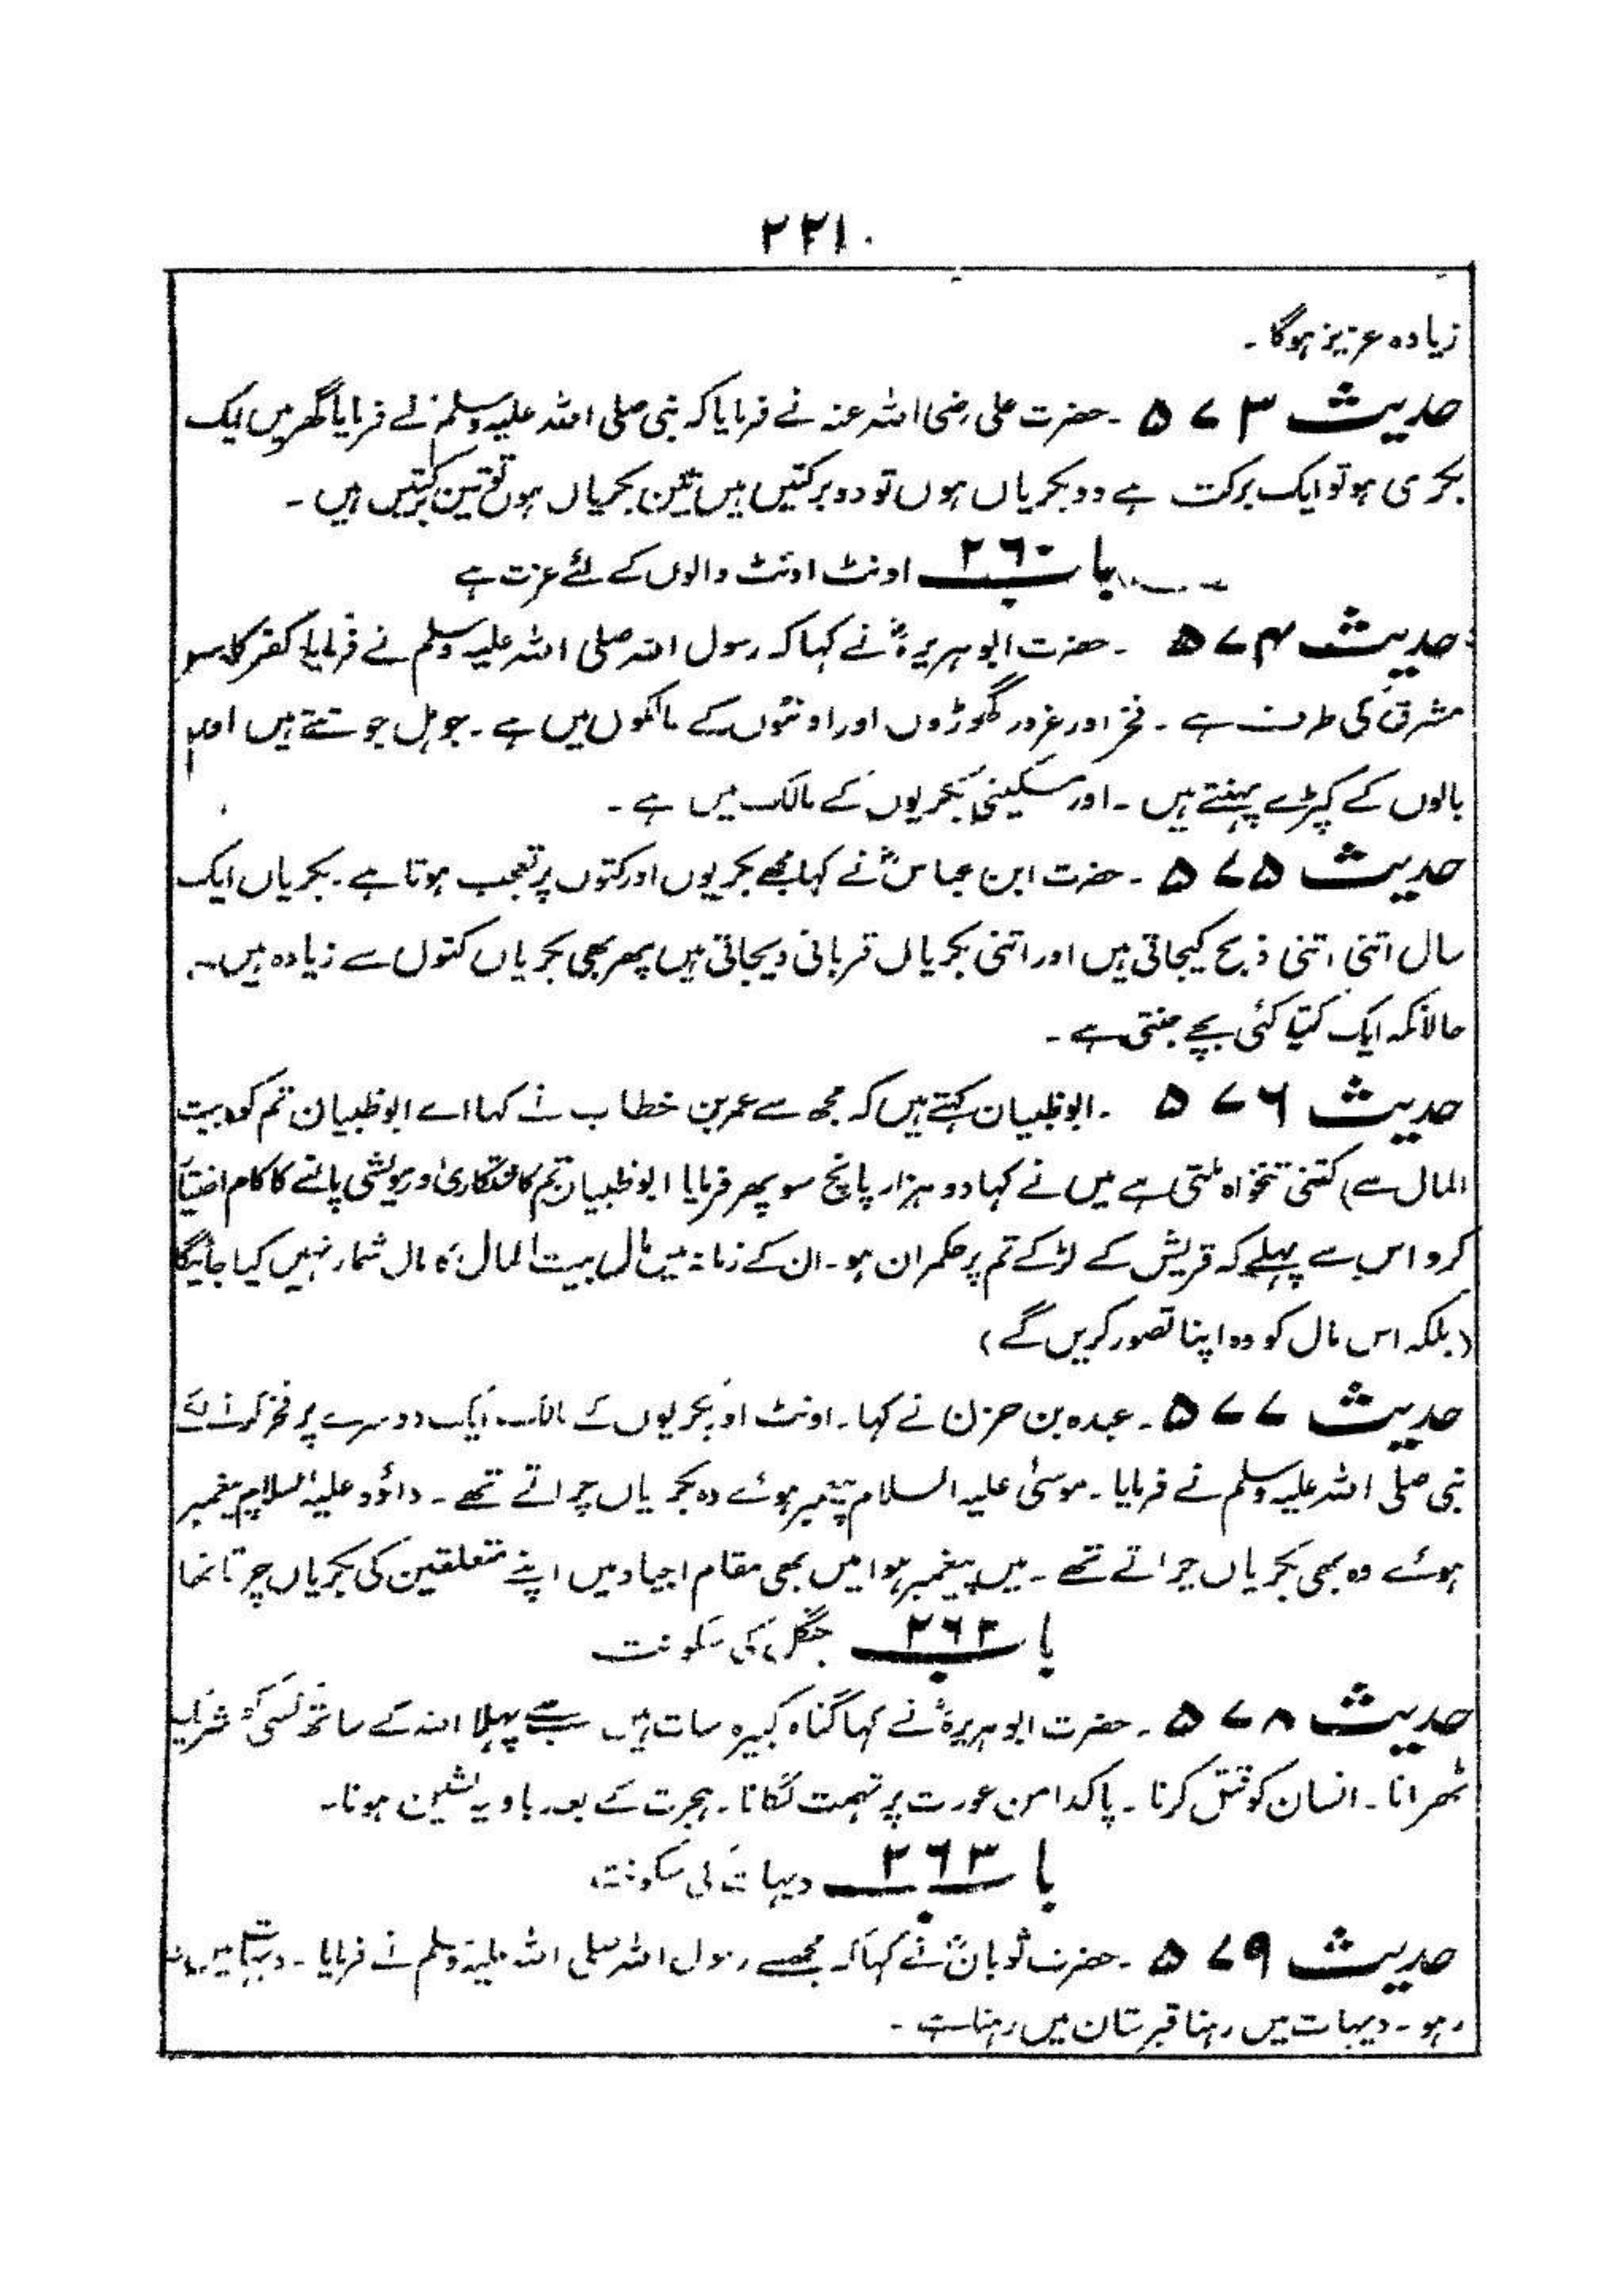 ۲۲۱۰
زیادہ عزیز ہوگا ۔
حدیث ۵۷۳ ۔ حضرت علی رضی اللہ عنہ نے فرمایا کہ نبی صلی اللہ علیہ وسلم نے فرمایا گھر میں ایک
بکری ہو تو ایک برکت ہے دو بکریاں ہوں تو دو برکتیں ہیں تین بکریاں ہوں تو تین برکتیں ہیں ۔
باب ۲۶۰ اونٹ اونٹ والوں کے لئے عزت ہے
حدیث ۵۷۴ ۔ حضرت ابو ہریرہؓ نے کہا کہ رسول اللہ صلی اللہ علیہ وسلم نے فرمایا کفر کا سر
مشرق کی طرف ہے ۔ فخر اور غرور گھوڑوں اور اونٹوں کے مالکوں میں ہے ۔ جو ہل جوتتے ہیں اور
بالوں کے کپڑے پہنتے ہیں ۔ اور مسکینی بکریوں کے مالک میں ہے ۔
حدیث ۵۷۵ ۔ حضرت ابن عباسؓ نے کہا مجھے بکریوں اور کتوں پر تعجب ہوتا ہے ۔ بکریاں ایک
سال اتنی اتنی ذبح کیجاتی ہیں اور اتنی بکریاں قربانی دیجاتی ہیں پھر بھی بکریاں کتوں سے زیادہ ہیں ۔
حالانکہ ایک کتیا کئی بچے جنتی ہے ۔
حدیث ۵۷۶ ۔ ابوظبیان کہتے ہیں کہ مجھ سے عمر بن خطاب نے کہا اے ابوظبیان تم کو (بیت
المال سے) کتنی تنخواہ ملتی ہے میں نے کہا دو ہزار پانچ سو پھر فرمایا ابوظبیان تم کاشتکاری اور مویشی پالنے کا کام اختیار
کرو اس سے پہلے کہ قریش کے لڑکے تم پر حکمران ہو ۔ ان کے زمانہ میں مال بیت المال کا مال شمار نہیں کیا جائیگا
(بلکہ اس مال کو وہ اپنا تصور کریں گے)
حدیث ۵۷۷ ۔ عبدہ بن حزن نے کہا ۔ اونٹ اور بکریوں کے مالک ایک دوسرے پر فخر کرنے لگے
نبی صلی اللہ علیہ وسلم نے فرمایا ۔ موسیٰ علیہ السلام پیغمبر ہوئے وہ بکریاں چراتے تھے ۔ داؤد علیہ السلام پیغمبر
ہوئے وہ بھی بکریاں چراتے تھے ۔ میں پیغمبر ہوا میں بھی مقام اجیاد میں اپنے متعلقین کی بکریاں چرتا تھا
باب ۲۶۲ جنگل کی سکونت
حدیث ۵۷۸ ۔ حضرت ابو ہریرہؓ نے کہا گناہ کبیرہ سات ہیں سب سے پہلا اللہ کے ساتھ کسی کو شریک
ٹھرانا ۔ انسان کو قتل کرنا ۔ پاکدامن عورت پر تہمت لگانا ۔ ہجرت کے بعد بادیہ نشین ہونا ۔
باب ۲۶۳ دیہات کی سکونت
حدیث ۵۷۹ ۔ حضرت ثوبانؓ نے کہا کہ مجھسے رسول اللہ صلی اللہ علیہ وسلم نے فرمایا ۔ دیہات میں نہ
رہو ۔ دیہات میں رہنا قبرستان میں رہنا ہے ۔